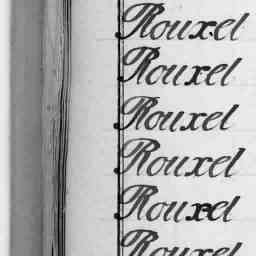 Rouxel
Rouxel
Rouxel
Rouxel
Rouxel
Rouxel